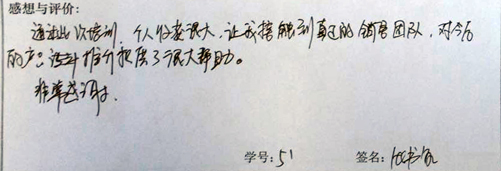 感想与评价:
通过此次培训,个人收获很大,让我接触到真正的销售团队,对今后
的产品设计推介提供了很大帮助。
非常感谢。
学号:51
签名: